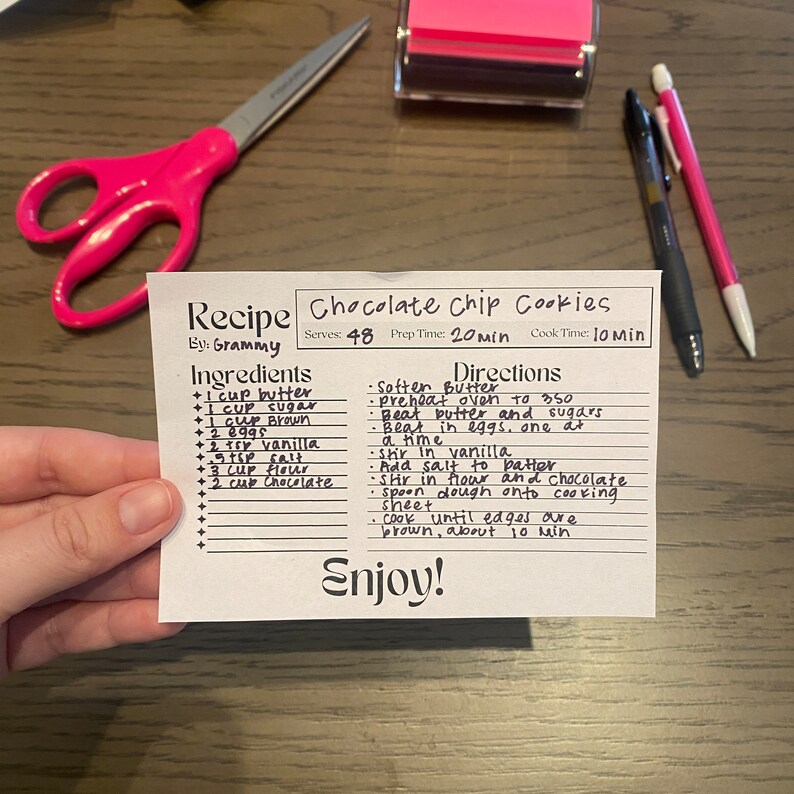 Recipe
By: Grammy
Chocolate Chip Cookies
Serves: 48 Prep Time: 20 min Cook Time: 10 Min
Ingredients
1 cup butter
1 cup sugar
1 cup Brown
2 eggs
2 tsp vanilla
.5 tsp salt
3 cup flour
2 cup chocolate
Directions
· Soften Butter
· preheat oven to 350
· Beat butter and sugars
· Beat in eggs. one at
a time
· stir in vanilla
· Add salt to batter
· stir in flour and chocolate
· spoon dough onto cooking
sheet
· cook until edges are
brown, about 10 min
Enjoy!